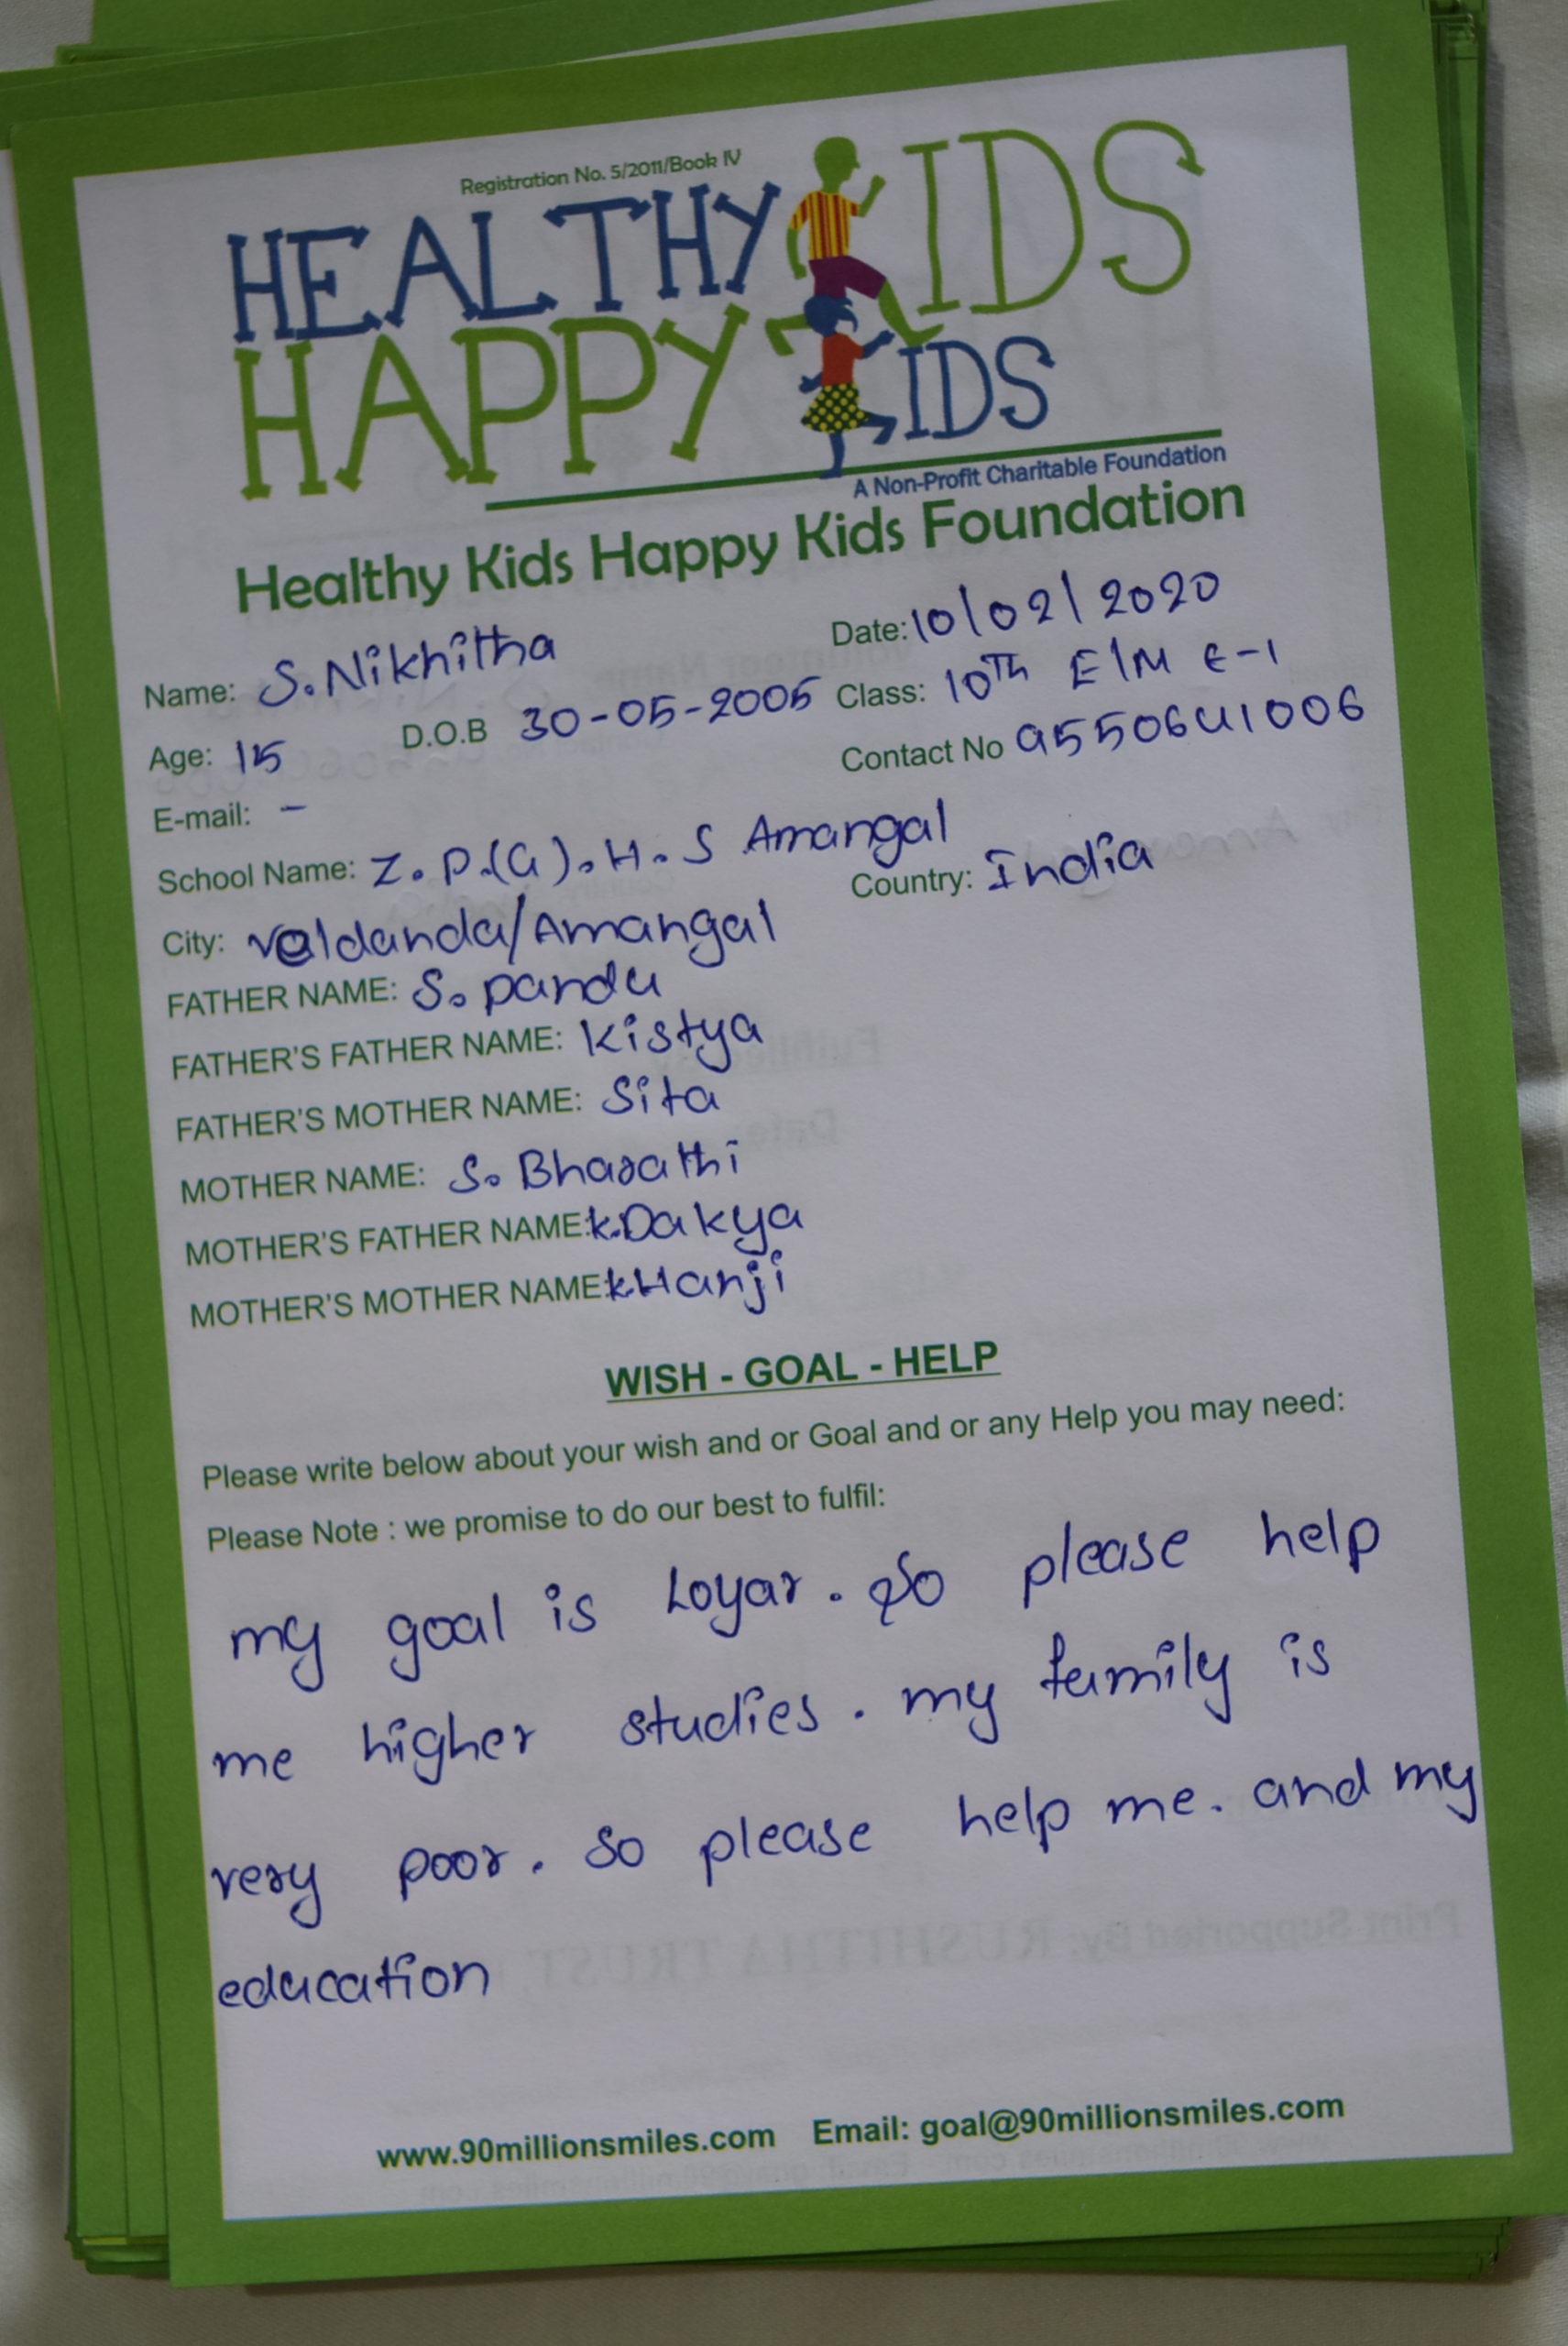 Registration No. 5/2011/Book IV
HEALTHY KIDS
HAPPY KIDS
A Non-Profit Charitable Foundation
Healthy Kids Happy Kids Foundation
Name: S. Nikhitha Date: 10/02/2020
Age: 15 D.O.B 30-05-2005 Class: 10TH E/M E-1
E-mail: - Contact No 9550641006
School Name: Z.P.(G).H.S Amangal
City: Veldanda/Amangal Country: India
FATHER NAME: S. pandu
FATHER'S FATHER NAME: Kistya
FATHER'S MOTHER NAME: Sita
MOTHER NAME: S. Bharathi
MOTHER'S FATHER NAME: K.Dakya
MOTHER'S MOTHER NAME: K Hanji
WISH - GOAL - HELP
Please write below about your wish and or Goal and or any Help you may need:
Please Note : we promise to do our best to fulfil:
my goal is Loyar. So please help
me higher studies. my family is
very poor. So please help me. and my
education
www.90millionsmiles.com Email: goal@90millionsmiles.com